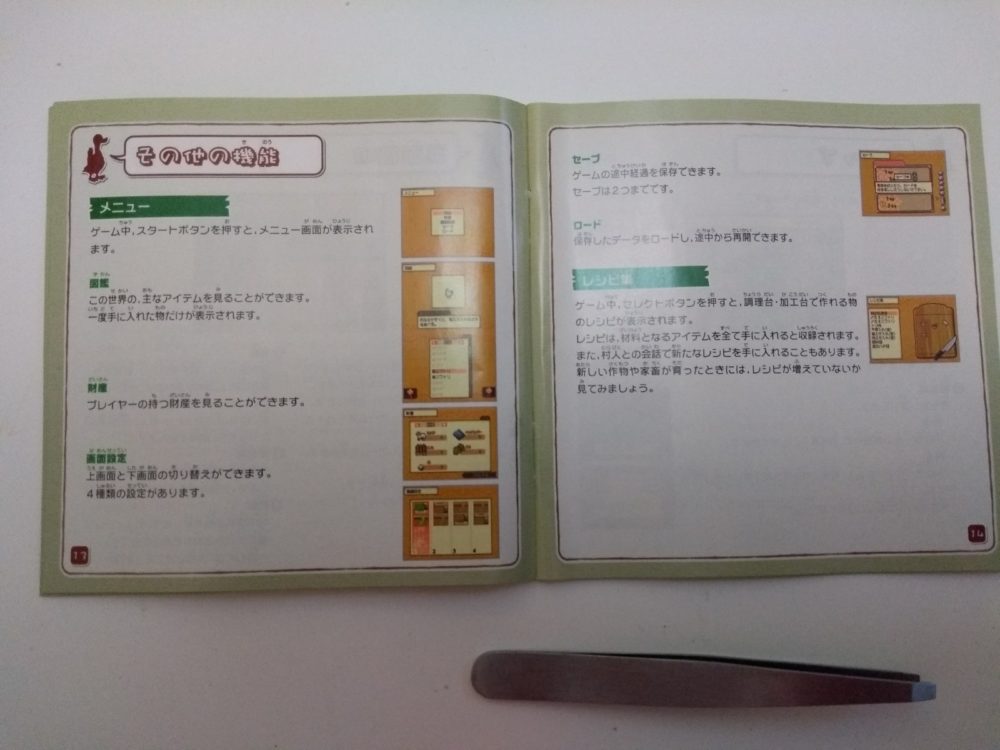 その他の機能
メニュー
ゲーム中,スタートボタンを押すと,メニュー画面が表示され
ます。
図鑑
この世界の,主なアイテムを見ることができます。
一度手に入れた物だけが表示されます。
財産
プレイヤーの持つ財産を見ることができます。
画面設定
上画面と下画面の切り替えができます。
4種類の設定があります。
13
セーブ
ゲームの途中経過を保存できます。
セーブは2つまでです。
ロード
保存したデータをロードし,途中から再開できます。
レシピ集
ゲーム中,セレクトボタンを押すと,調理台・加工台で作れる物
のレシピが表示されます。
レシピは,材料となるアイテムを全て手に入れると収録されます。
また,村人との会話で新たなレシピを手に入れることもあります。
新しい作物や家畜が育ったときには,レシピが増えていないか
見てみましょう。
14